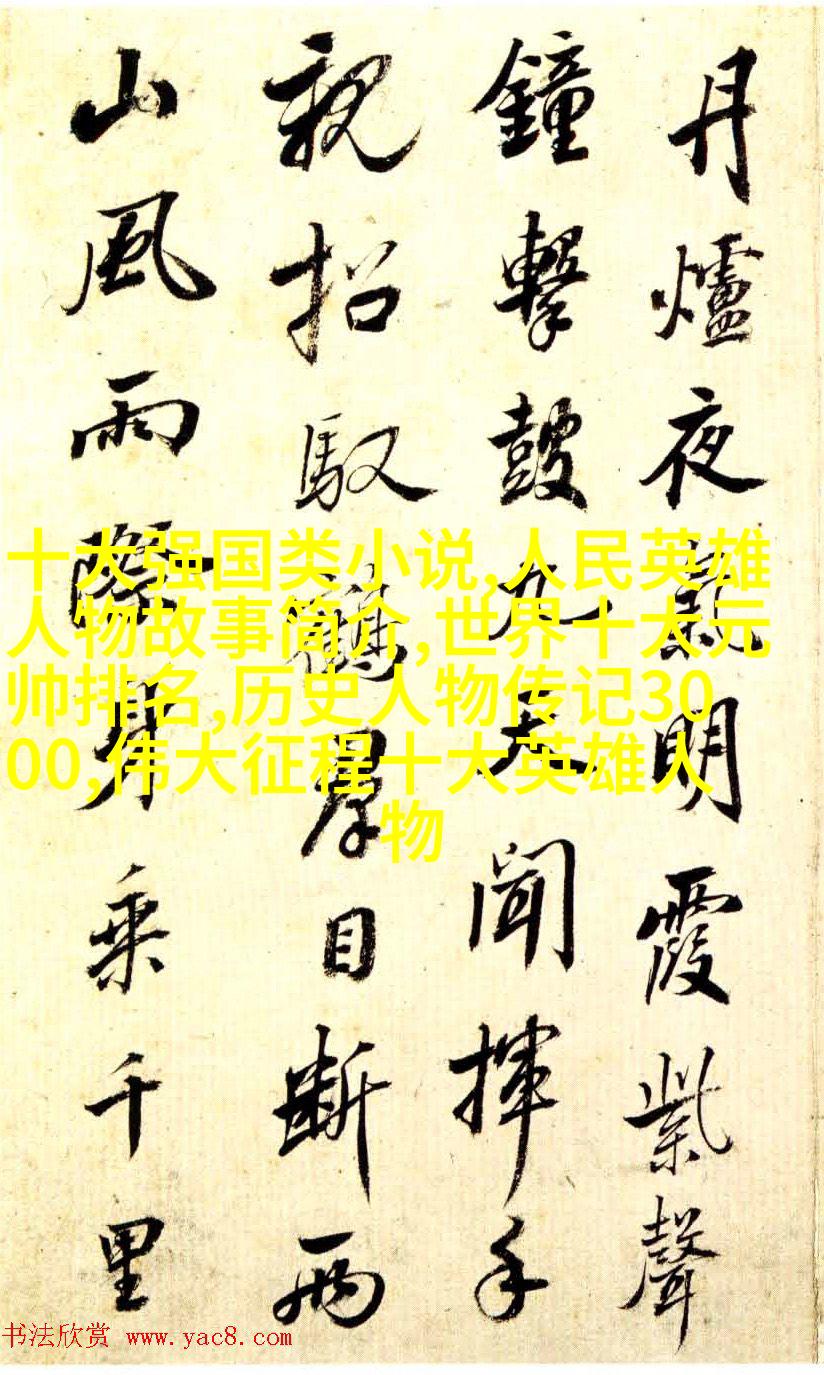 丹爐夜氣明霞紫聲
鐘擊鼓九天聞揮手
親招馭鶴羣目斷兩
山風雨際身乘千里
十大强国类小说,人民英雄
人物故事简介,世界十大元
帅排名,历史人物传记30
00,伟大征程十大英雄人
物
书法欣赏 www.yac8.com